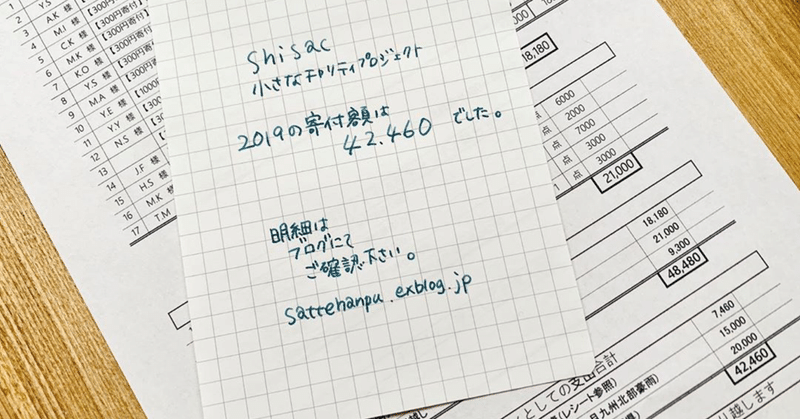 1 Y.S 様【300円寄付】
2 A.K 様【300円寄付】
3 M.J 様【300円寄付】
4 C.K 様【300円寄付】
5 M.K 様【300円寄付】
6 K.O 様【300円寄付】
7 Y.S 様【300円寄付】
8 M.A 様【300円
9 Y.E 様【1000円
10 Y.Y 様【300円
11 N.S 様【300円
12
13
14 J.F 様【300円
15 H.S 様【300
16 M.K 様【300
17 T.M
shisac
小さなチャリティプロジェクト
2019の寄付額は
42.460 でした。
明細は
ブログにて
ご確認下さい。
sattehanpu.exblog.jp
18,180
点 6000
点 2000
点 7000
点 3000
1 点 3000
21,000
18,180
21,000
9,300
48,480
としての支出合計
7,460
(レシート参照) 15,000
九州北部豪雨) 20,000
42,460
り越します